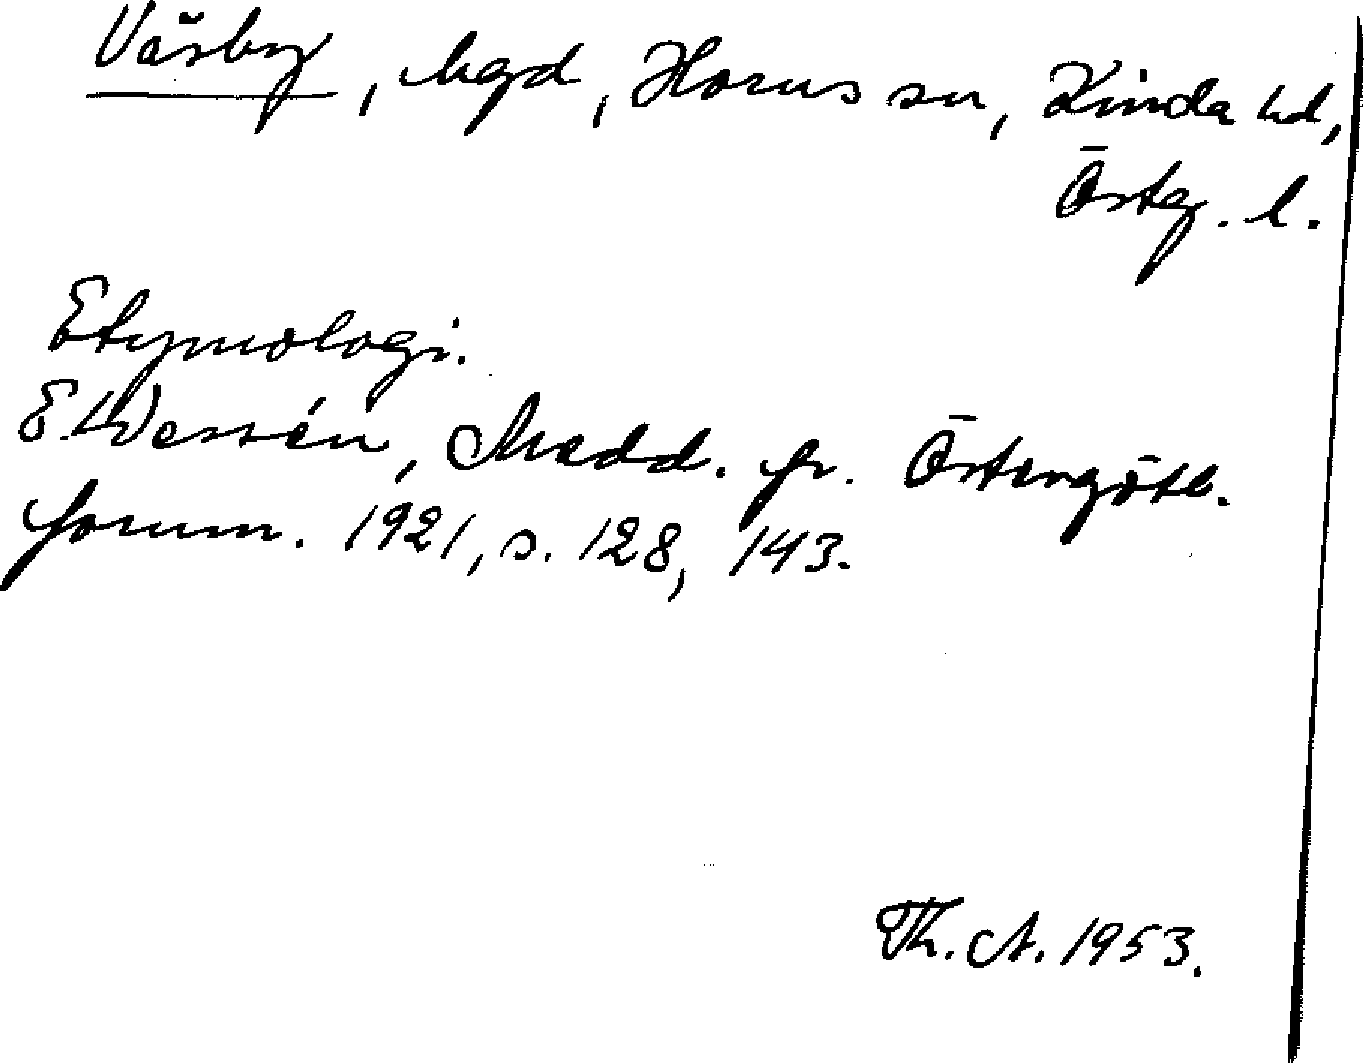 Väsby, bgd, Horns sn, Kinda hd,
Östg. l.
Etymologi.
E. Wessén, Medd. fr. Östergötl.
fornm. 1921, s. 128, 143.
Th. A. 1953.